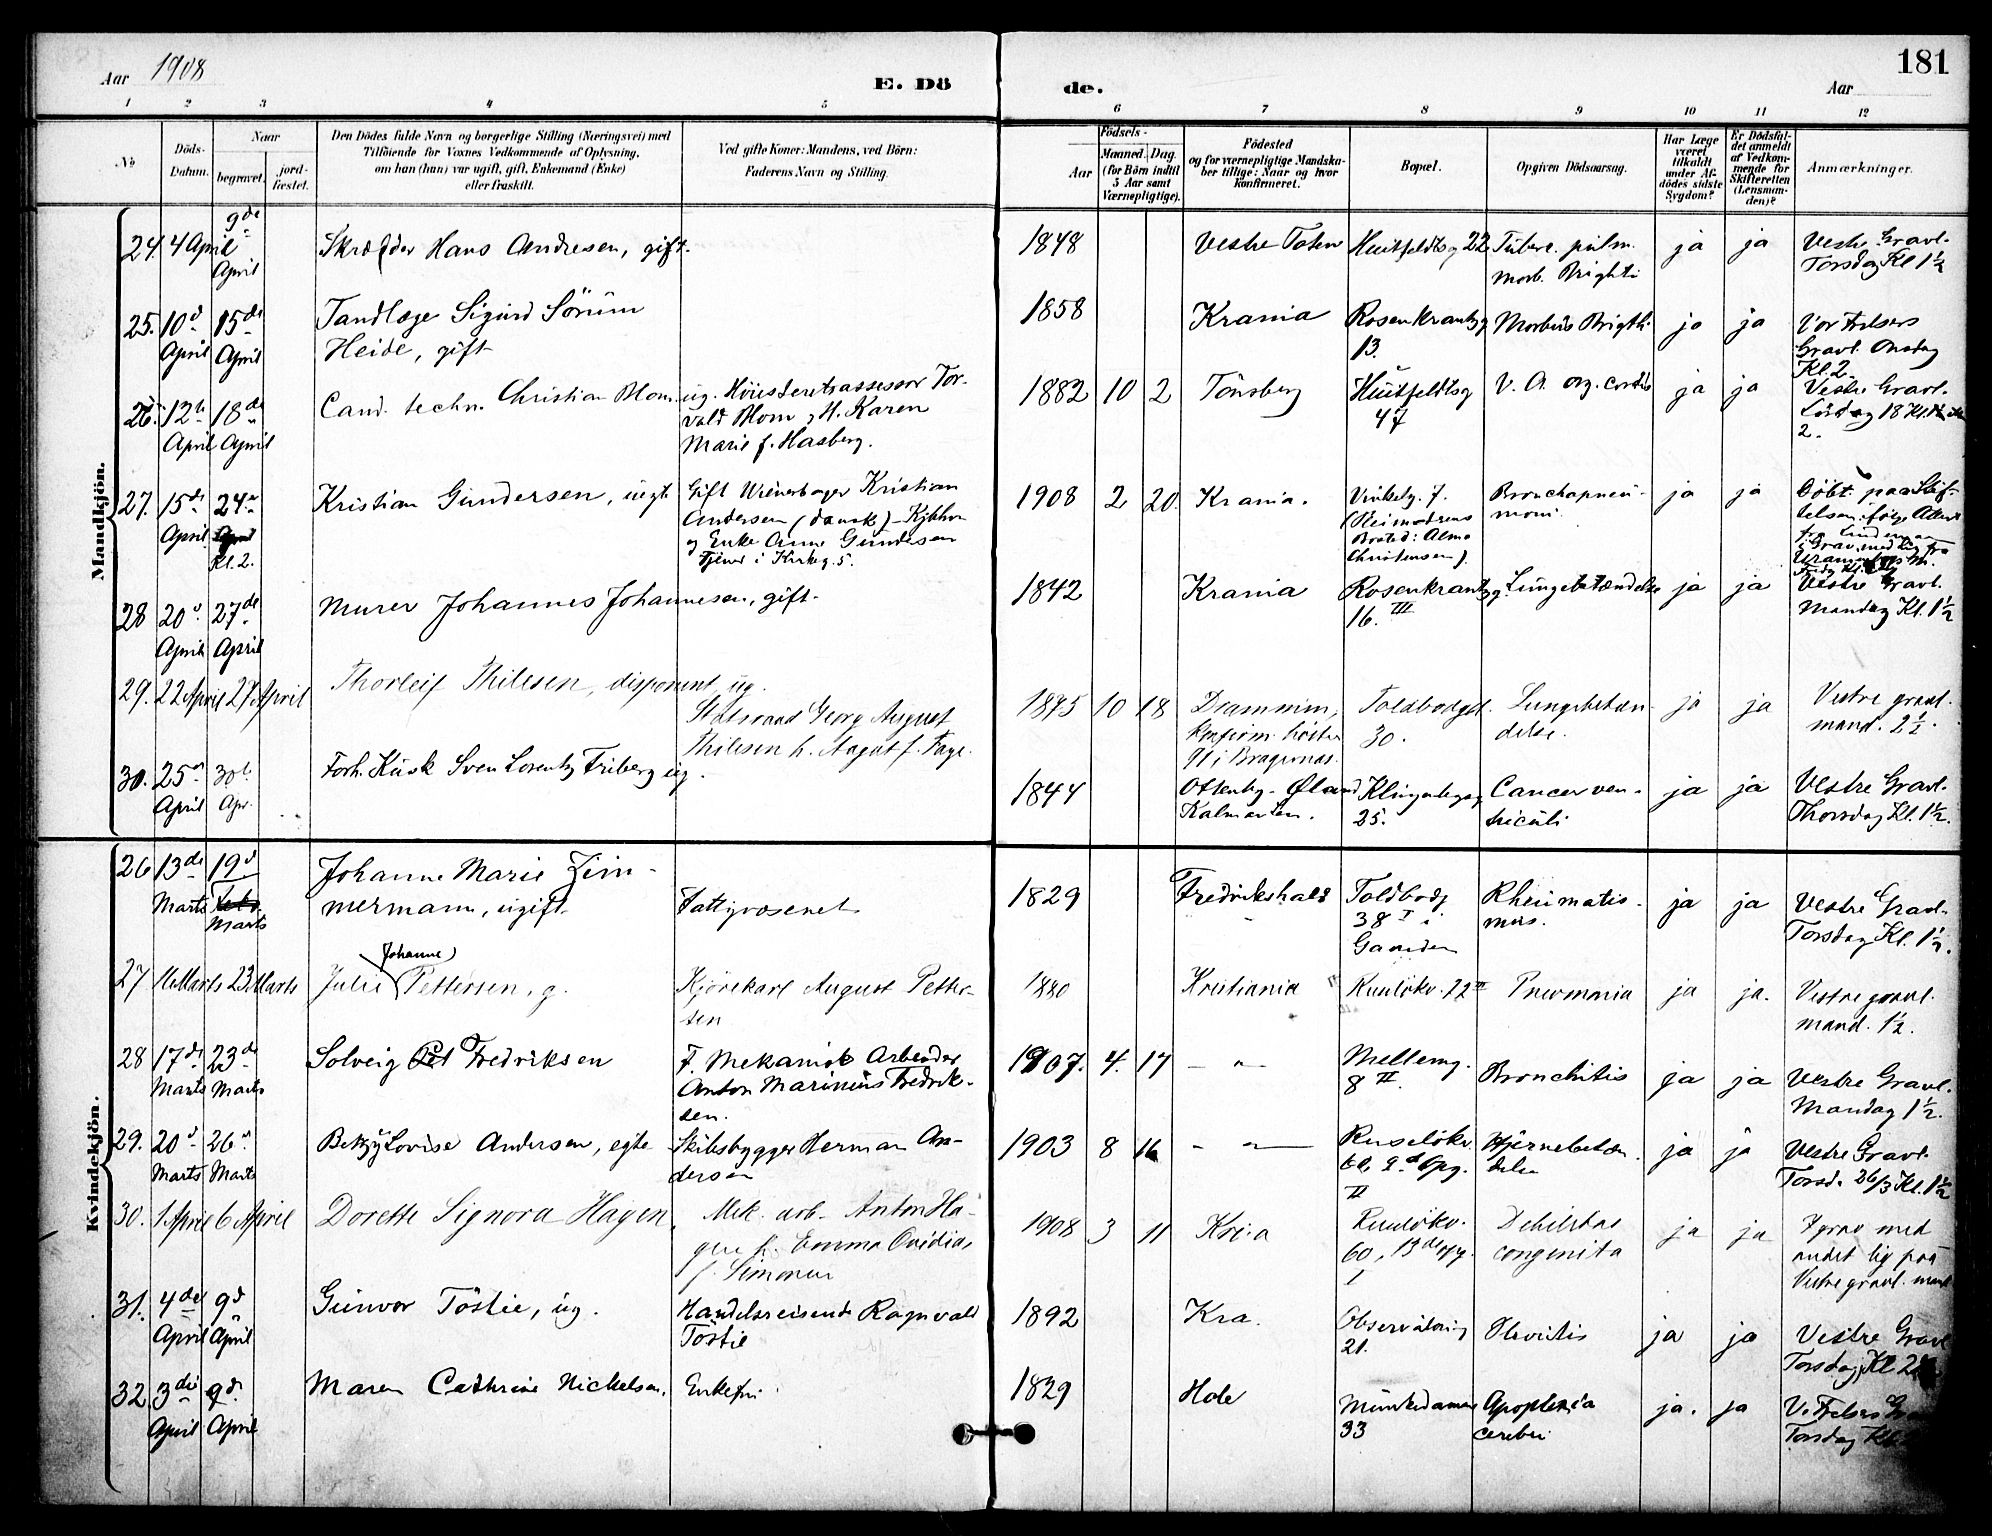 181
Aar 1908
E. Döde.
Aar
1 2 3 4 5 6 7 8 9 10 11 12
No
Döds-
Datum.
Naar
begravet.
jord-
fæstet.
Den Dödes fulde Navn og borgerlige Stilling (Næringsvei) med
Tilföiende for Voxnes Vedkommende af Oplysning,
om han (hun) var ugift, gift, Enkemand (Enke)
eller fraskilt.
Ved gifte Koner: Mandens, ved Börn:
Faderens Navn og Stilling.
Födsels-
Aar
Maaned.
Dag.
(for Börn indtil
5 Aar samt
Værnepligtige).
Födested
og for værnepligtige Mandska-
ber tillige: Naar og hvor
konfirmeret.
Bopæl.
Opgiven Dödsaarsag.
Har Læge
været
tilkaldt
under Af-
dödes sidste
Sygdom?
Er Dödsfal-
det anmeldt
af Vedkom-
mende for
Skifteretten
(Lensman-
den)?
Anmærkninger.
Mandkjön.
24. 4 April 9de April
Skrædder Hans Andresen, gift.
1848
Vestre Toten
Huitfeldtsg 22
Tuberc. pulm.
Morb. Brighti
ja ja
Vestre Gravl.
Torsdag Kl 1½
25. 10d April 15de April
Tandlæge Sigurd Sörum
Heide, gift
1858
Krania
Rosenkrantzg
13.
Morbus Brigthi
ja ja
Vor Frelsers
Gravl. Onsdag
Kl. 2.
26. 12te April 18de April
Cand. techn. Christian Mom. ug.
Höiesteretsassessor Tor-
vald Mom og H. Karen
Marie f. Hasberg.
1882 10 2
Tönsberg
Huitfeldtsg
47
V. O. org. cordis
ja ja
Vestre Gravl.
Lördag 18 Kl.
2.
27. 15de April 24de Kl. 2.
Kristian Gundersen, uegte
Gift Wienerbager Kristian
Andersen (dansk) - Kjbhvn
og Enke Anne Gundersen
Tjener i Kirkeg. 5.
1908 2 20
Krania.
Vinkelg. 7.
Christensen).
Bronchopneu-
moni.
ja ja
Döbt paa Stif-
28 20d April 27de April
Murer Johannes Johannesen, gift.
1842
Krania
Rosenkrantzg
16. III
Lungebetændelse
ja ja
Vestre Gravl.
Mandag Kl. 1½
29. 22 April 27 April
Thorleif Thilesen, disponent, ug.
Statsraad Georg August
Thilesen h. August f. Fage.
1875 10 18
Drammen,
konfirm. höste
91 i Bragernes.
Toldbodgt.
30.
Lungebetæn-
delse.
ja ja
Vestre gravl.
mand. 2½.
30. 25de April 30te Apr.
Forh. Kusk Sven Lorentz Friberg ug.
1844
Ottenby - Øland
Kalmarlen.
Klingenbergsg
25.
Cancer ven-
triculi
ja ja
Vestre Gravl.
Thorsdag Kl. 1½.
Kvindekjön.
26 13de Marts 19d Marts
Johanne Marie Zim-
mermann, ugift
Fattigvæsenet
1829
Fredrikshald
Toldbodg
38 I i
Gaarden
Rheumatis-
mus.
ja ja
Vestre Grav-
Torsdag Kl. 1½.
27 16 Marts 23 Marts
Johanne
Julie Pettersen, g.
Kjörekarl August Petter-
sen
1880
Kristiania
Ruselökv. 72 II
Pneumonia
ja ja.
Vestre gravl.
mand. 1½.
28 17de Marts 23de Marts
Solveig Fredriksen
F. Mekanisk Arbeider
Anton Marinius Fredrik-
sen.
1907. 4. 17
— " —
Mellemg.
8 II.
Bronchitis
ja ja
Vestre Gravl.
Mandag 1½.
29. 20d Marts 26de Marts
Betzy Lovise Andersen, egte
Skibsbygger Herman An-
dersen
1903 8 16
— " —
Ruselökv.
II
Hjernebetæn-
delse
ja ja
Vestre Gravl.
Torsd. 26/3 Kl. 1½
30. 1 April 6 April
Dorette Signora Hagen,
Mek. arb. Anton Ha-
gen h. Emma Ovidia
f. Simonsen
1908 3 11
Kr.i.a
Ruselökv.
60, 13de opg.
I
Debilitas
congenita
ja ja
I grav med
andet lig paa
Vestre gravl. mand
31. 4de April 9d April
Gunvor Töstie, ug.
Handelsreisende Ragnvald
Töstie
1892
Kra.
Observatorieg
21.
ja ja
Vestre Gravl
Torsdag, Kl 2½
32 3die April 9d. April
Maren Cathrine Nickelsen.
Enkefru.
1829
Hole
Munkedamsv
33
Apoplexia
cerebri
ja. ja
V. Frelsers Gr
Torsdag Kl.